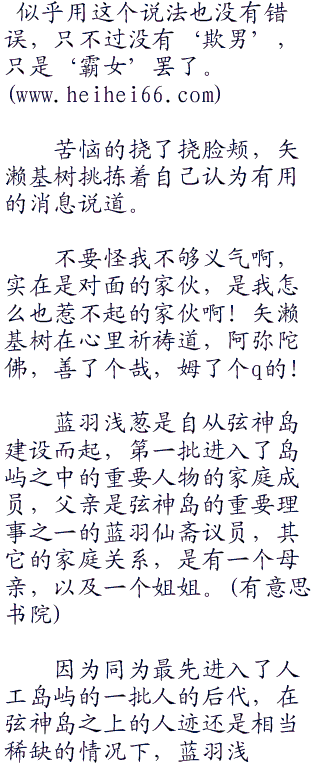 似乎用这个说法也没有错
误，只不过没有‘欺男’，
只是‘霸女’罢了。
(www.heihei66.com)
苦恼的挠了挠脸颊，矢
濑基树挑拣着自己认为有用
的消息说道。
不要怪我不够义气啊，
实在是对面的家伙，是我怎
么也惹不起的家伙啊！矢濑
基树在心里祈祷道，阿弥陀
佛，善了个哉，姆了个q的！
蓝羽浅葱是自从弦神岛
建设而起，第一批进入了岛
屿之中的重要人物的家庭成
员，父亲是弦神岛的重要理
事之一的蓝羽仙斋议员，其
它的家庭关系，是有一个母
亲，以及一个姐姐。(有意思
书院)
因为同为最先进入了人
工岛屿的一批人的后代，在
弦神岛之上的人迹还是相当
稀缺的情况下，蓝羽浅